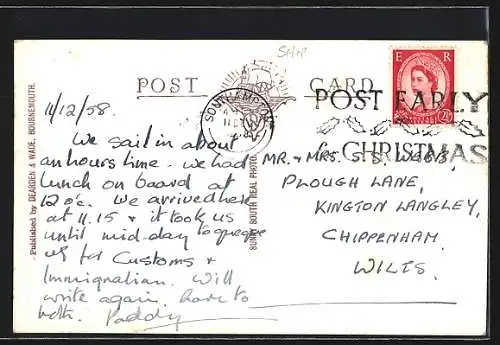 SHIP
POST CARD
E R
2½
SOUTHAMPTON
POST EARLY
for CHRISTMAS
11/12/58.
We sail in about
an hours time. We had
lunch on board at
12 o'c. We arrived here
at 11.15 & it took us
until mid-day to queue
up for Customs &
Immigration. Will
write again. Love to
both. Paddy
MR. & MRS. S. S. WEBB,
PLOUGH LANE,
KINGTON LANGLEY,
CHIPPENHAM.
WILTS.
Published by DEARDEN & WADE, BOURNEMOUTH.
SUNNY SOUTH REAL PHOTO.